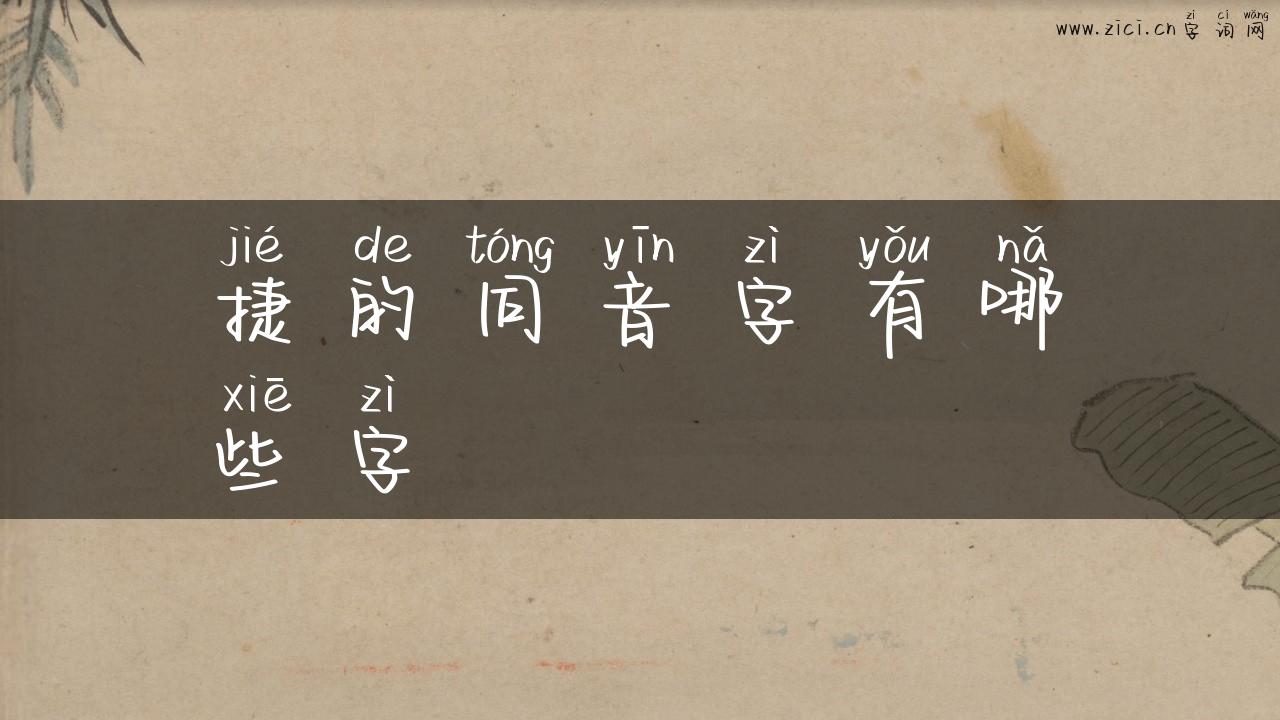 zì cí wǎng
www.zici.cn 字 词 网
jié de tóng yīn zì yǒu nǎ
捷 的 同 音 字 有 哪
xiē zì
些 字